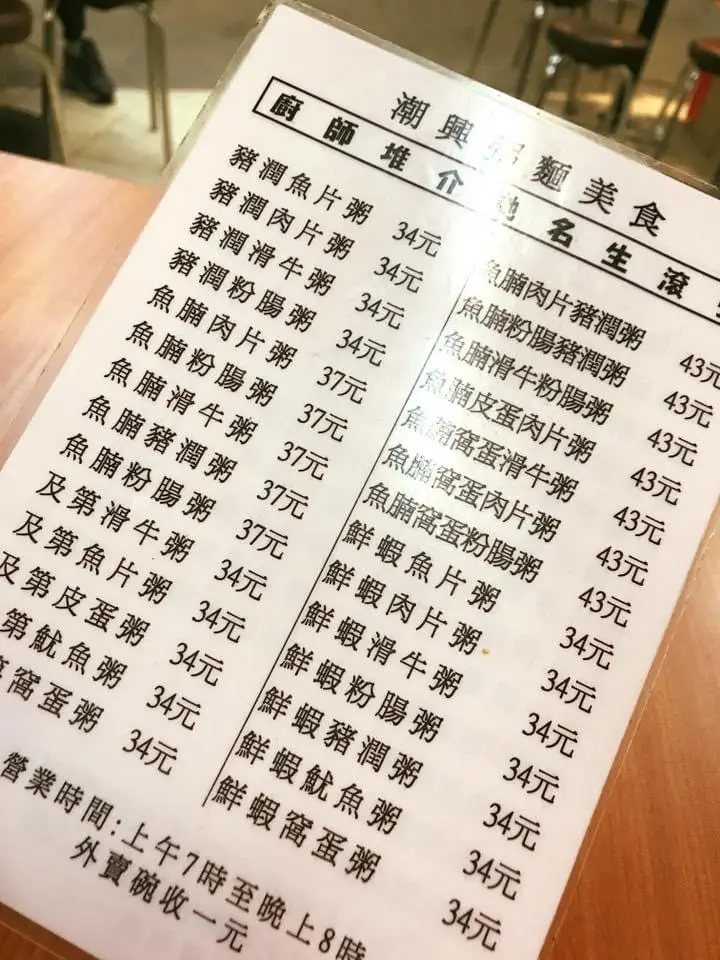 潮興粥麵美食
廚師堆介馳名生滾
豬潤魚片粥 34元
豬潤肉片粥 34元
豬潤滑牛粥 34元
豬潤粉腸粥 34元
魚腩肉片粥 37元
魚腩粉腸粥 37元
魚腩滑牛粥 37元
魚腩豬潤粥 37元
魚腩粉腸粥 37元
及第滑牛粥 34元
及第魚片粥 34元
及第皮蛋粥 34元
第魷魚粥 34元
窩蛋粥 34元
魚腩肉片豬潤粥 43元
魚腩粉腸豬潤粥 43元
魚腩滑牛粉腸粥 43元
魚腩皮蛋肉片粥 43元
魚腩窩蛋滑牛粥 43元
魚腩窩蛋肉片粥 43元
魚腩窩蛋粉腸粥 43元
鮮蝦魚片粥 34元
鮮蝦肉片粥 34元
鮮蝦滑牛粥 34元
鮮蝦粉腸粥 34元
鮮蝦豬潤粥 34元
鮮蝦魷魚粥 34元
鮮蝦窩蛋粥 34元
營業時間:上午7時至晚上8時
外賣碗收一元